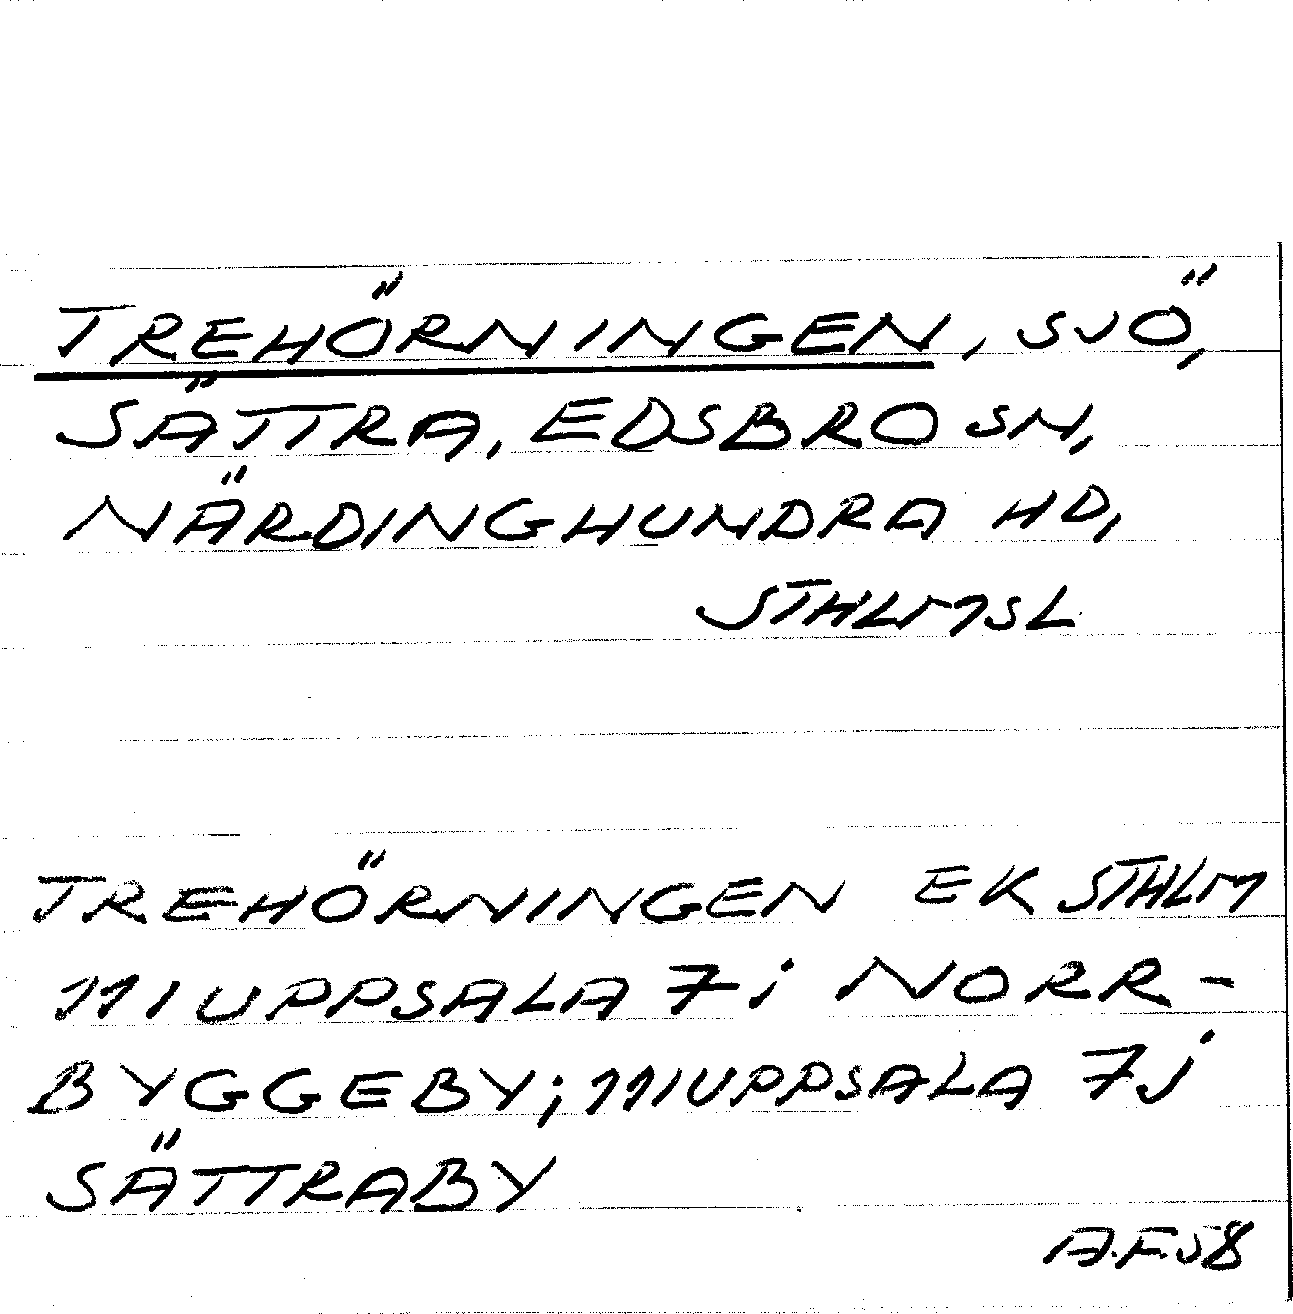 TREHÖRNINGEN, SJÖ,
SÄTTRA, EDSBRO SN,
NÄRDINGHUNDRA HD,
STHLMSL
TREHÖRNINGEN EK STHLM
11I UPPSALA 7i NORR-
BYGGEBY; 11I UPPSALA 7j
SÄTTRABY
A.F.58